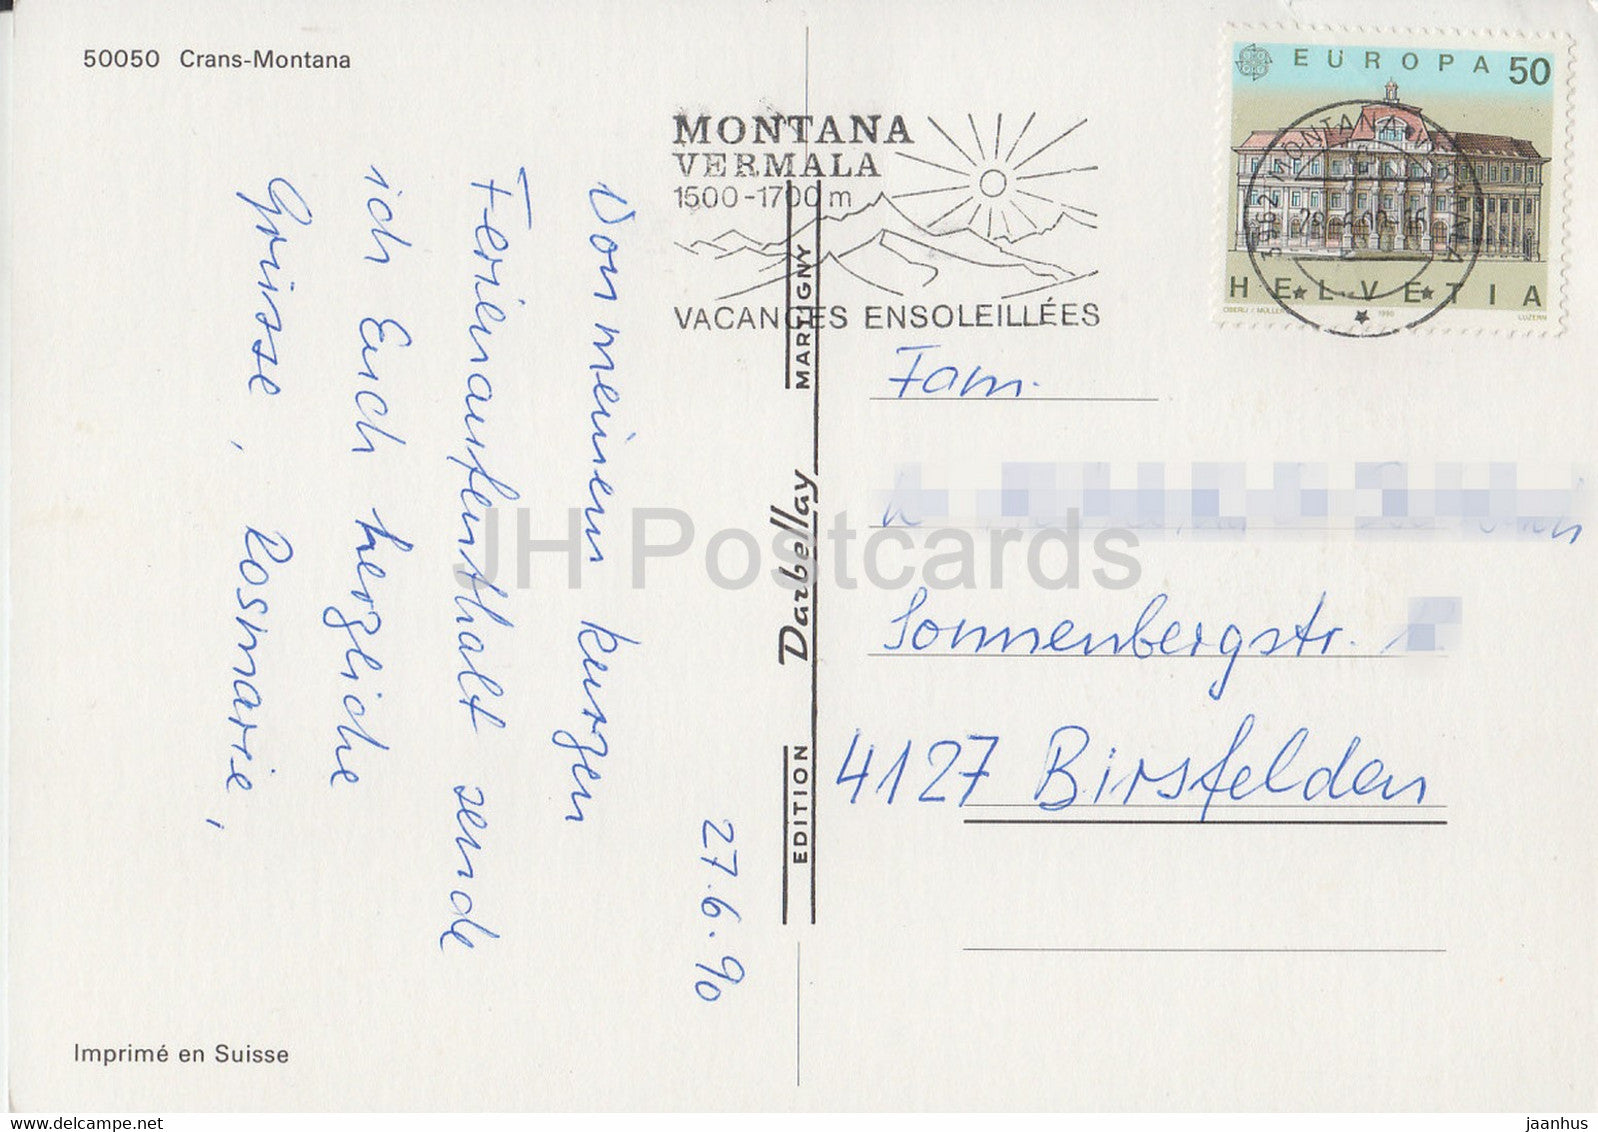 50050 Crans-Montana
MONTANA
VERMALA
1500-1700 m
VACANCES ENSOLEILLÉES
EUROPA 50
3962 MONTANA-VERMALA
HELVETIA
OBERLI / MÜLLER 1990 LUZERN
27.6.90
Von meinem kurzen
Ferienaufenthalt sende
ich Euch herzliche
Grüsse, Rosmarie,
EDITION Darbellay MARTIGNY
Fam.
Sonnenbergstr.
4127 Birsfelden
JH Postcards
Imprimé en Suisse
www.delcampe.net
jaanhus